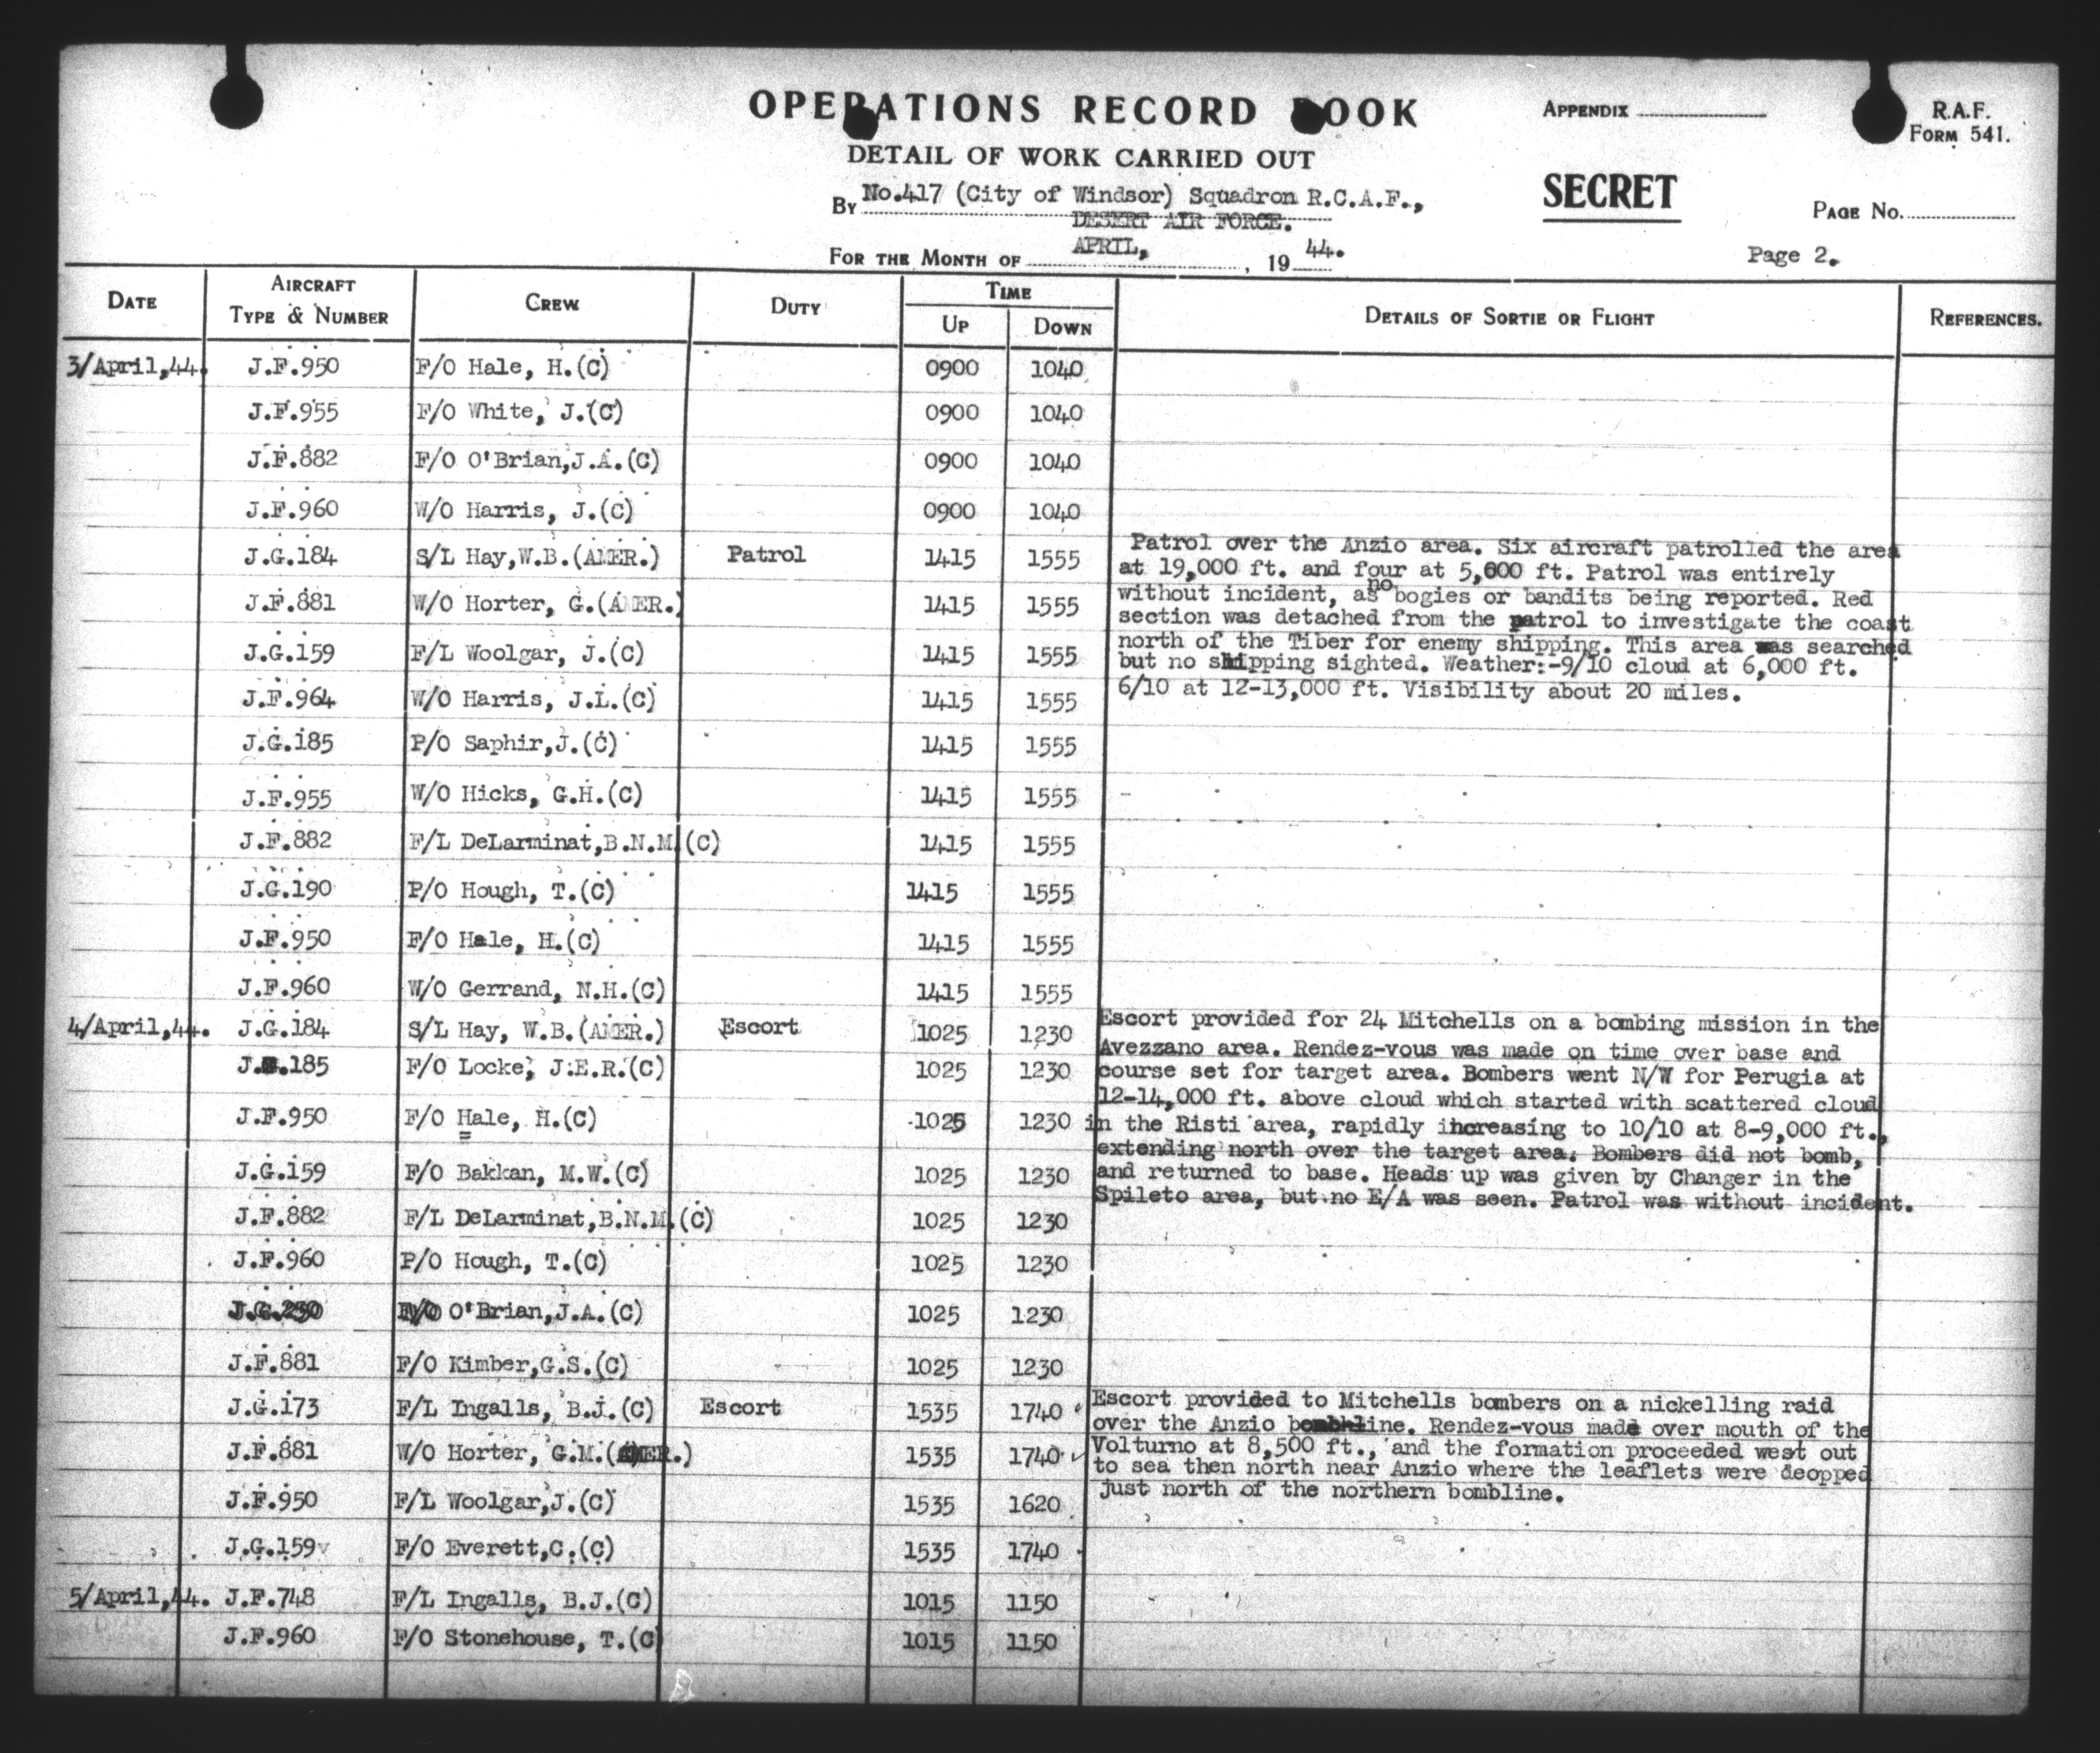 OPERATIONS RECORD BOOK
APPENDIX
R.A.F.
FORM 541.
DETAIL OF WORK CARRIED OUT
SECRET
By No.417 (City of Windsor) Squadron R.C.A.F.,
DESERT AIR FORCE.
PAGE No.
FOR THE MONTH OF APRIL, , 19 44.
Page 2.
DATE AIRCRAFT TYPE & NUMBER CREW DUTY TIME UP DOWN DETAILS OF SORTIE OR FLIGHT REFERENCES.
3/April,44. J.F.950 F/O Hale, H.(C) 0900 1040
J.F.955 F/O White, J.(C) 0900 1040
J.F.882 F/O O'Brian,J.A.(C) 0900 1040
J.F.960 W/O Harris, J.(C) 0900 1040
J.G.184 S/L Hay,W.B.(AMER.) Patrol 1415 1555
Patrol over the Anzio area. Six aircraft patrolled the area
at 19,000 ft. and four at 5,000 ft. Patrol was entirely
without incident, as no bogies or bandits being reported. Red
section was detached from the patrol to investigate the coast
north of the Tiber for enemy shipping. This area was searched
but no shipping sighted. Weather:-9/10 cloud at 6,000 ft.
6/10 at 12-13,000 ft. Visibility about 20 miles.
J.F.881 W/O Horter, G.(AMER.) 1415 1555
J.G.159 F/L Woolgar, J.(C) 1415 1555
J.F.964 W/O Harris, J.L.(C) 1415 1555
J.G.185 P/O Saphir,J.(C) 1415 1555
J.F.955 W/O Hicks, G.H.(C) 1415 1555
J.F.882 F/L DeLarminat,B.N.M.(C) 1415 1555
J.G.190 P/O Hough, T.(C) 1415 1555
J.F.950 F/O Hale, H.(C) 1415 1555
J.F.960 W/O Gerrand, N.H.(C) 1415 1555
4/April,44. J.G.184 S/L Hay, W.B.(AMER.) Escort 1025 1230
Escort provided for 24 Mitchells on a bombing mission in the
Avezzano area. Rendez-vous was made on time over base and
course set for target area. Bombers went N/W for Perugia at
12-14,000 ft. above cloud which started with scattered cloud
in the Risti area, rapidly increasing to 10/10 at 8-9,000 ft.,
extending north over the target area. Bombers did not bomb,
and returned to base. Heads up was given by Changer in the
Spileto area, but no E/A was seen. Patrol was without incident.
J. .185 F/O Locke, J.E.R.(C) 1025 1230
J.F.950 F/O Hale, H.(C) 1025 1230
J.G.159 F/O Bakkan, M.W.(C) 1025 1230
J.F.882 F/L DeLarminat,B.N.M.(C) 1025 1230
J.F.960 P/O Hough, T.(C) 1025 1230
O'Brian,J.A.(C) 1025 1230
J.F.881 F/O Kimber,G.S.(C) 1025 1230
J.G.173 F/L Ingalls, B.J.(C) Escort 1535 1740
Escort provided to Mitchells bombers on a nickelling raid
over the Anzio bombline. Rendez-vous made over mouth of the
Volturno at 8,500 ft., and the formation proceeded west out
to sea then north near Anzio where the leaflets were deopped
just north of the northern bombline.
J.F.881 W/O Horter, G.M.(AMER.) 1535 1740
J.F.950 F/L Woolgar,J.(C) 1535 1620
J.G.159 F/O Everett,C.(C) 1535 1740
5/April,44. J.F.748 F/L Ingalls, B.J.(C) 1015 1150
J.F.960 F/O Stonehouse, T.(C) 1015 1150